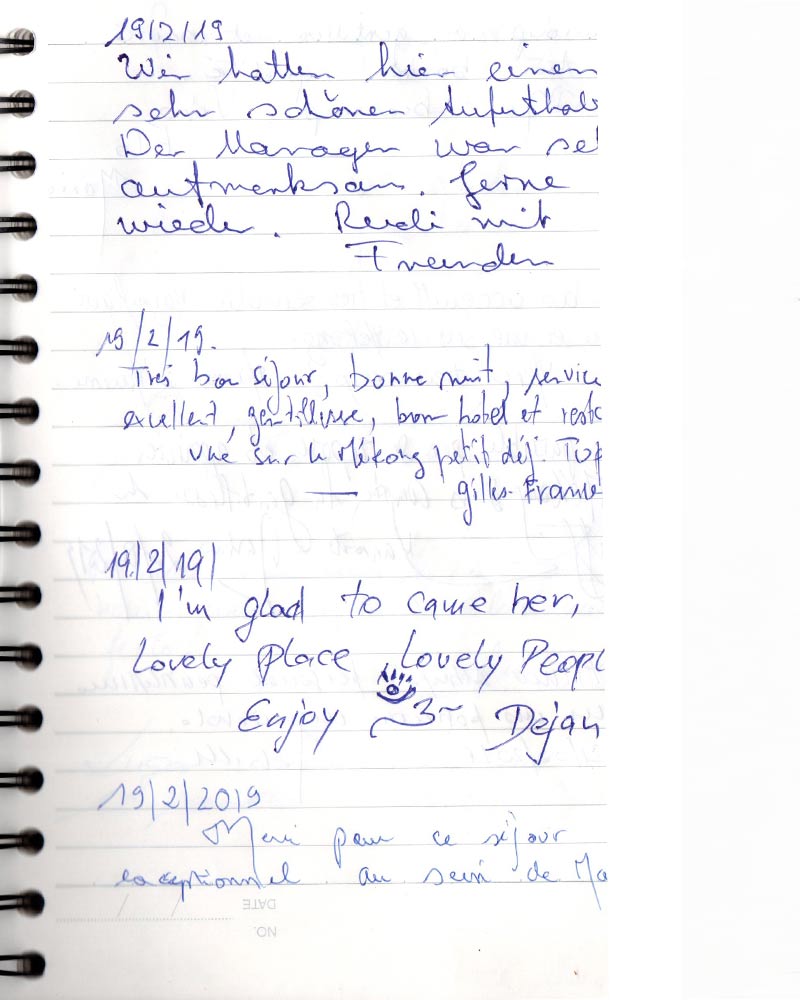 19/2/19
Wir hatten hier einen
sehr schönen Aufenthal
Der Manager war se
aufmerksam. Gerne
wieder. Rudi mit
Freunden
19/2/19.
Très bon séjour, bonne nuit, service
excellent, gentillesse, bon hotel et resto
vue sur le Mékong petit déj. Top
Gilles. France
19/2/19/
I'm glad to came her,
Lovely Place Lovely Peopl
Enjoy Dejan
19/2/2019
Merci pour ce séjour
exceptionnel au sein de Ma
DATE
NO.